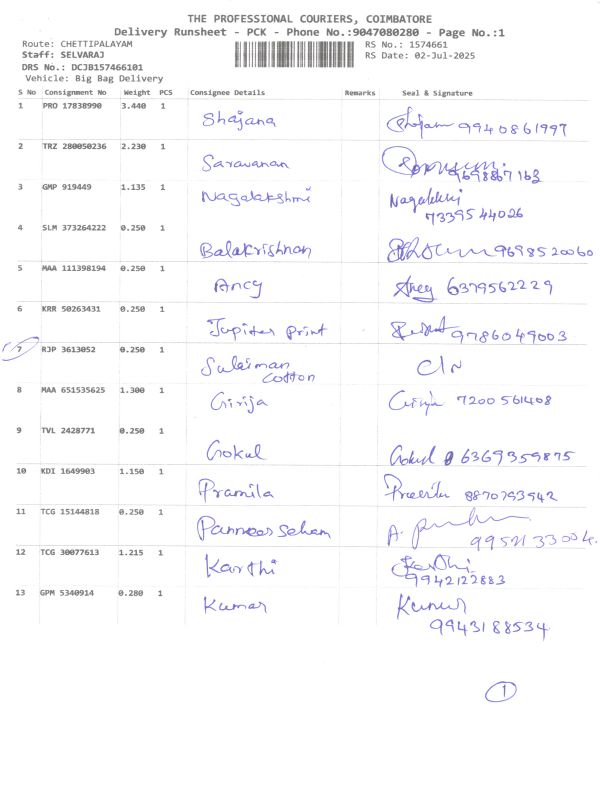 THE PROFESSIONAL COURIERS, COIMBATORE
Delivery Runsheet - PCK - Phone No.:9047080280 - Page No.:1
Route: CHETTIPALAYAM RS No.: 1574661
Staff: SELVARAJ RS Date: 02-Jul-2025
DRS No.: DCJB157466101
Vehicle: Big Bag Delivery
S No Consignment No Weight PCS Consignee Details Remarks Seal & Signature
1 PRO 17838990 3.440 1
Shajana 9940861997
2 TRZ 280050236 2.230 1
Saravanan 9698867163
3 GMP 919449 1.135 1
Nagalakshmi
7339544026
4 SLM 373264222 0.250 1
Balakrishnan 9698520060
5 MAA 111398194 0.250 1
Ancy 6379562229
6 KRR 50263431 0.250 1
Jupiter print 9786049003
7 RJP 3613052 0.250 1
Sulaiman
Cotton
8 MAA 651535625 1.300 1
Girija Girija 7200561408
9 TVL 2428771 0.250 1
Gokul Gokul 6369359875
10 KDI 1649903 1.150 1
Pramila 8870793942
11 TCG 15144818 0.250 1
12 TCG 30077613 1.215 1
Karthi Karthi
9942122883
13 GPM 5340914 0.280 1
Kumar Kumar
9943188534
1